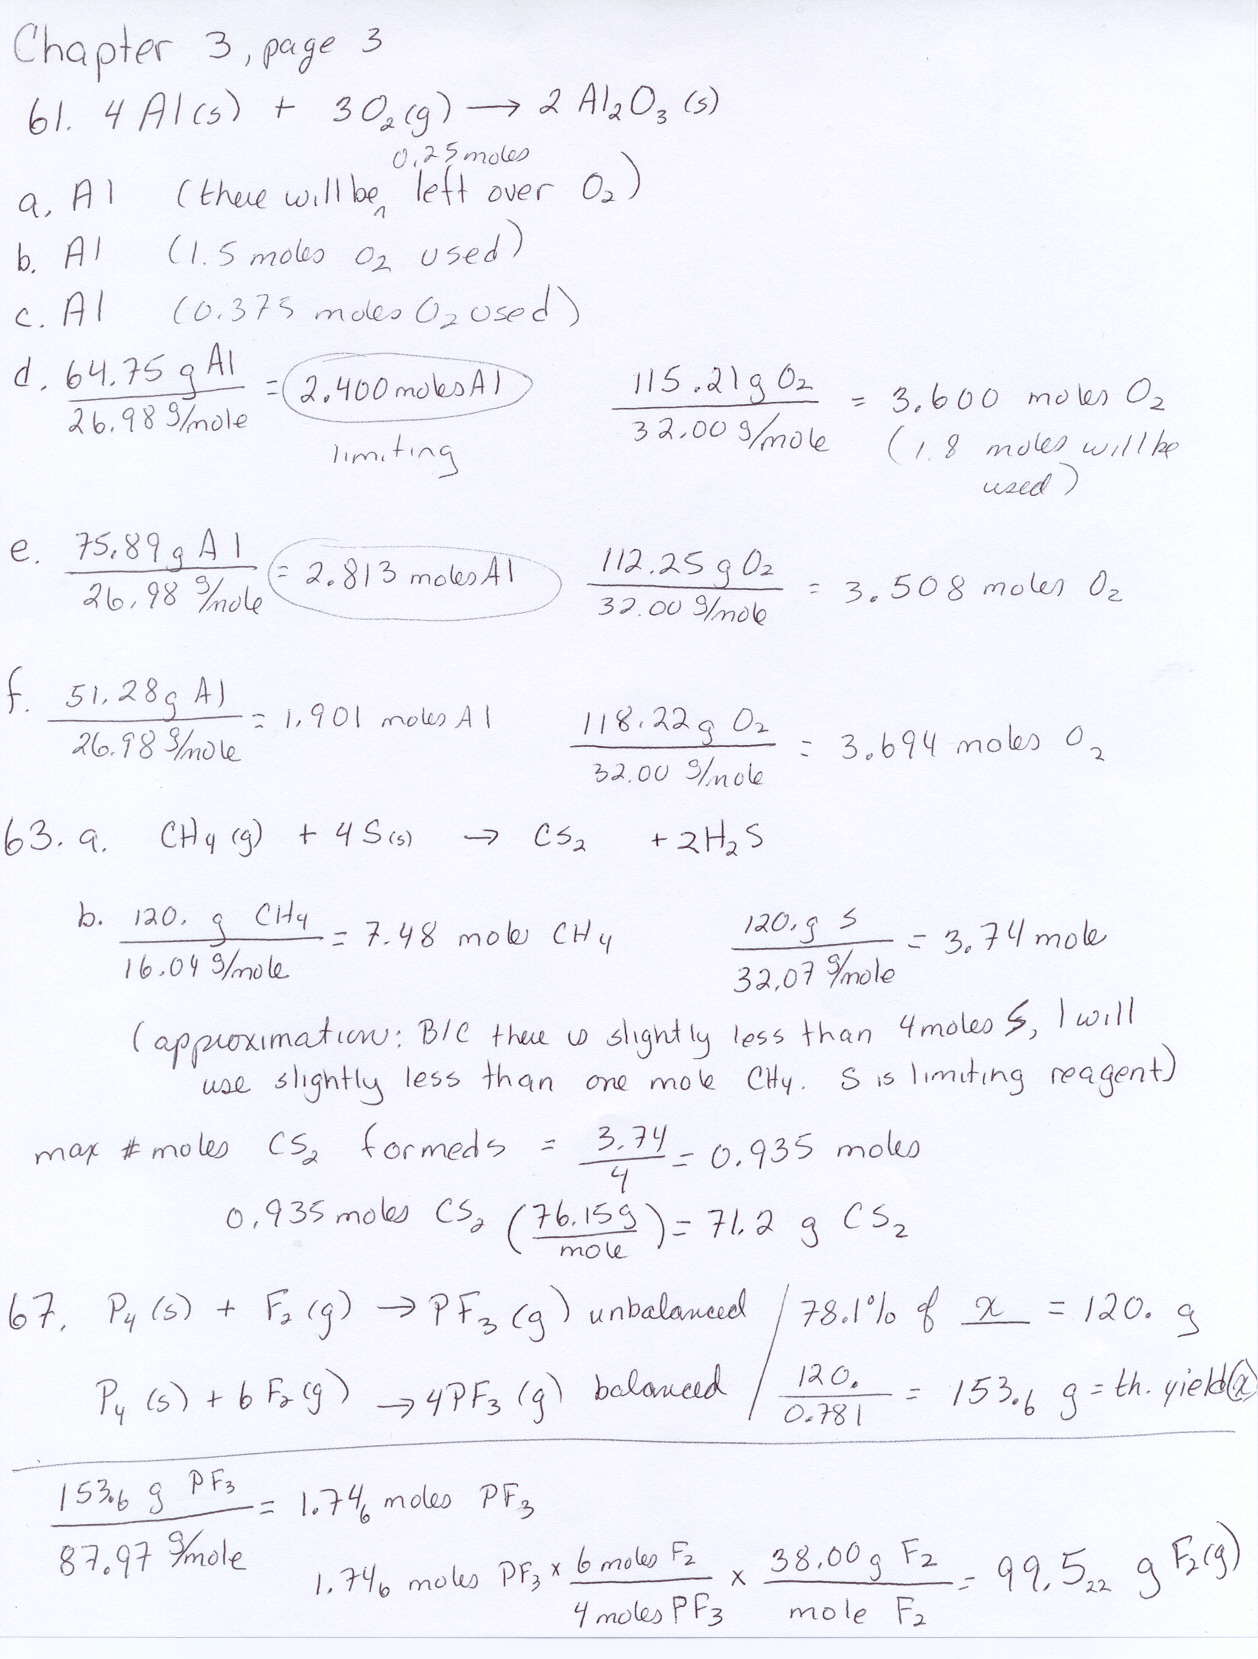 Chapter 3, page 3
61. 4 Al(s) + 3O₂(g) → 2 Al₂O₃(s)
0.25 moles
a. Al (there will be ^ left over O₂)
b. Al (1.5 moles O₂ used)
c. Al (0.375 moles O₂ used)
d. 64.75 g Al / 26.98 g/mole = 2.400 moles Al 115.21 g O₂ / 32.00 g/mole = 3.600 moles O₂
limiting (1.8 moles will be
used)
e. 75.89 g Al / 26.98 g/mole = 2.813 moles Al 112.25 g O₂ / 32.00 g/mole = 3.508 moles O₂
f. 51.28 g Al / 26.98 g/mole = 1.901 moles Al 118.22 g O₂ / 32.00 g/mole = 3.694 moles O₂
63. a. CH₄(g) + 4S(s) → CS₂ + 2H₂S
b. 120. g CH₄ / 16.04 g/mole = 7.48 mole CH₄ 120. g S / 32.07 g/mole = 3.74 mole
(approximation: B/C there is slightly less than 4 moles S, I will
use slightly less than one mole CH₄. S is limiting reagent)
max # moles CS₂ formeds = 3.74 / 4 = 0.935 moles
0.935 moles CS₂ (76.15g / mole) = 71.2 g CS₂
67. P₄(s) + F₂(g) → PF₃(g) unbalanced / 78.1% of x = 120. g
P₄(s) + 6 F₂(g) → 4PF₃(g) balanced / 120. / 0.781 = 153.₆ g = th. yield(x)
153.₆ g PF₃ / 87.97 g/mole = 1.74₆ moles PF₃
1.74₆ moles PF₃ × 6 moles F₂ / 4 moles PF₃ × 38.00 g F₂ / mole F₂ = 99.5₂₂ g F₂(g)